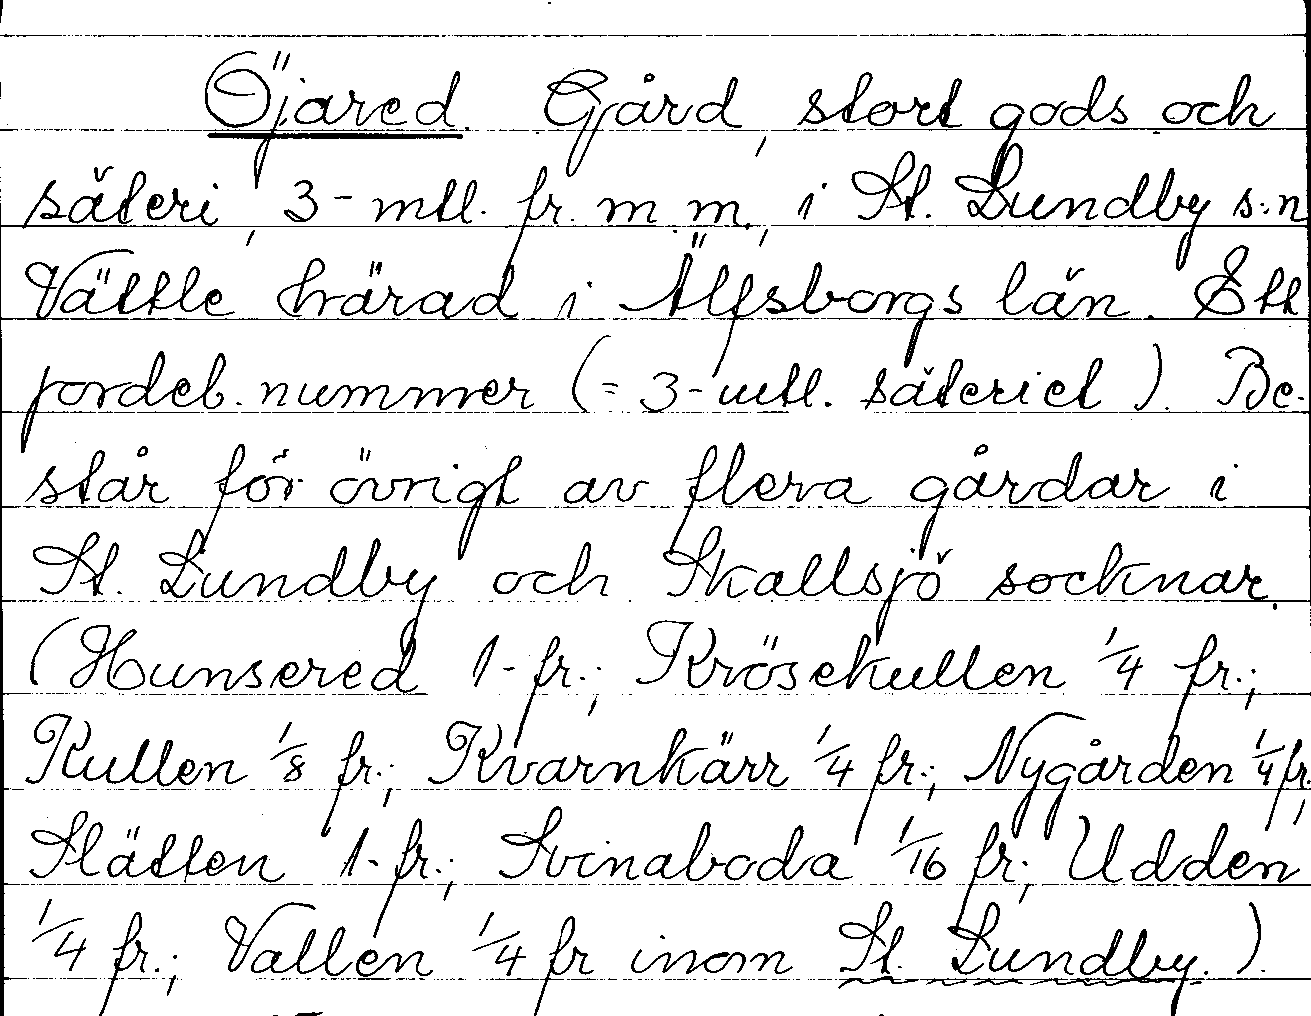 Öjared. Gård, stort gods och
säteri, 3-mtl. fr. m. m., i St. Lundby s:n
Vättle härad i Älfsborgs län. Ett
jordeb. nummer (= 3-mtl. säteriet). Be-
står för övrigt av flera gårdar i
St. Lundby och Skallsjö socknar.
(Hunsered 1- fr.; Krösekullen 1/4 fr.;
Kullen 1/8 fr.; Kvarnkärr 1/4 fr.; Nygården 1/4 fr.;
Slätten 1- fr.; Svinaboda 1/16 fr.; Udden
1/4 fr.; Vallen 1/4 fr inom St. Lundby.).